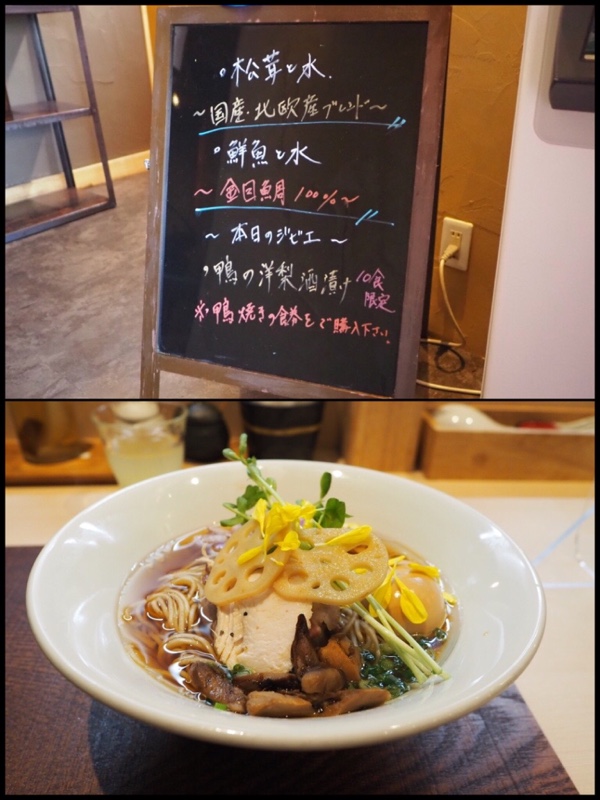 ○松茸と水.
～国産・北欧産ブレンド～
○鮮魚と水
～金目鯛100%～
～本日のジビエ～
・鴨の洋梨酒漬け 10食限定
※鴨焼きの食券をご購入下さい。